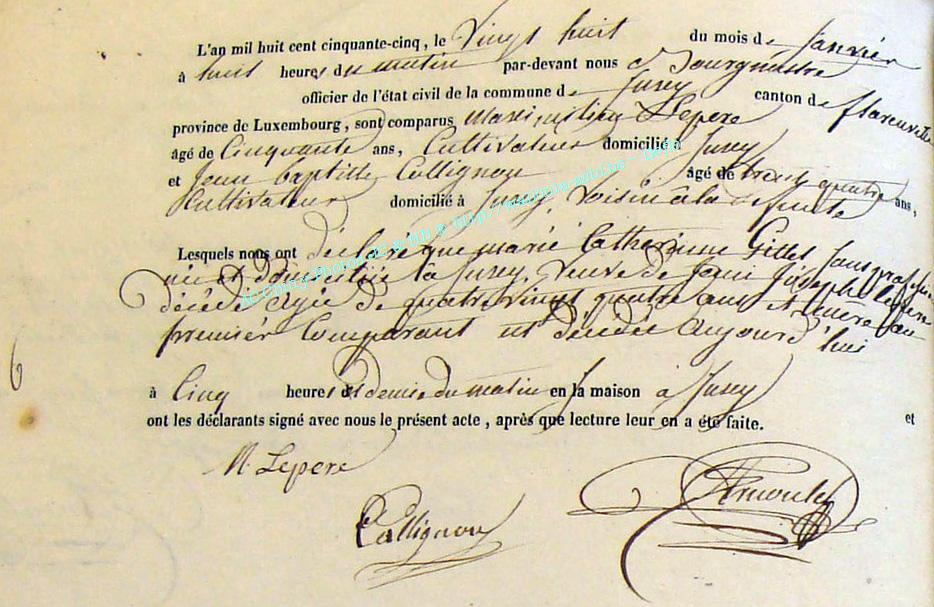 L'an mil huit cent cinquante-cinq, le Vingt huit du mois de Janvier
à huit heures du matin par-devant nous Bourgmestre
officier de l'état civil de la commune de Jusey canton de
province de Luxembourg, sont comparus Maximilien Lepere
âgé de Cinquante ans, Cultivateur domicilié à Jusey
et Jean baptiste Collignon âgé de trente quatre ans,
Cultivateur domicilié à Jusey, Voisin à la defunte
Lesquels nous ont déclaré que marie Catherinne Gillet sans profession
née et domiciliée à Jusey, veuve de Jean Joseph lepere
décédé agée de quatre vingt quatre ans et mere au
premier Comparant est décédée aujourd'hui
à Cinq heures et demie du matin en la maison à Jusey
et
ont les déclarants signé avec nous le présent acte, après que lecture leur en a été faite.
M. Lepere
Collignon